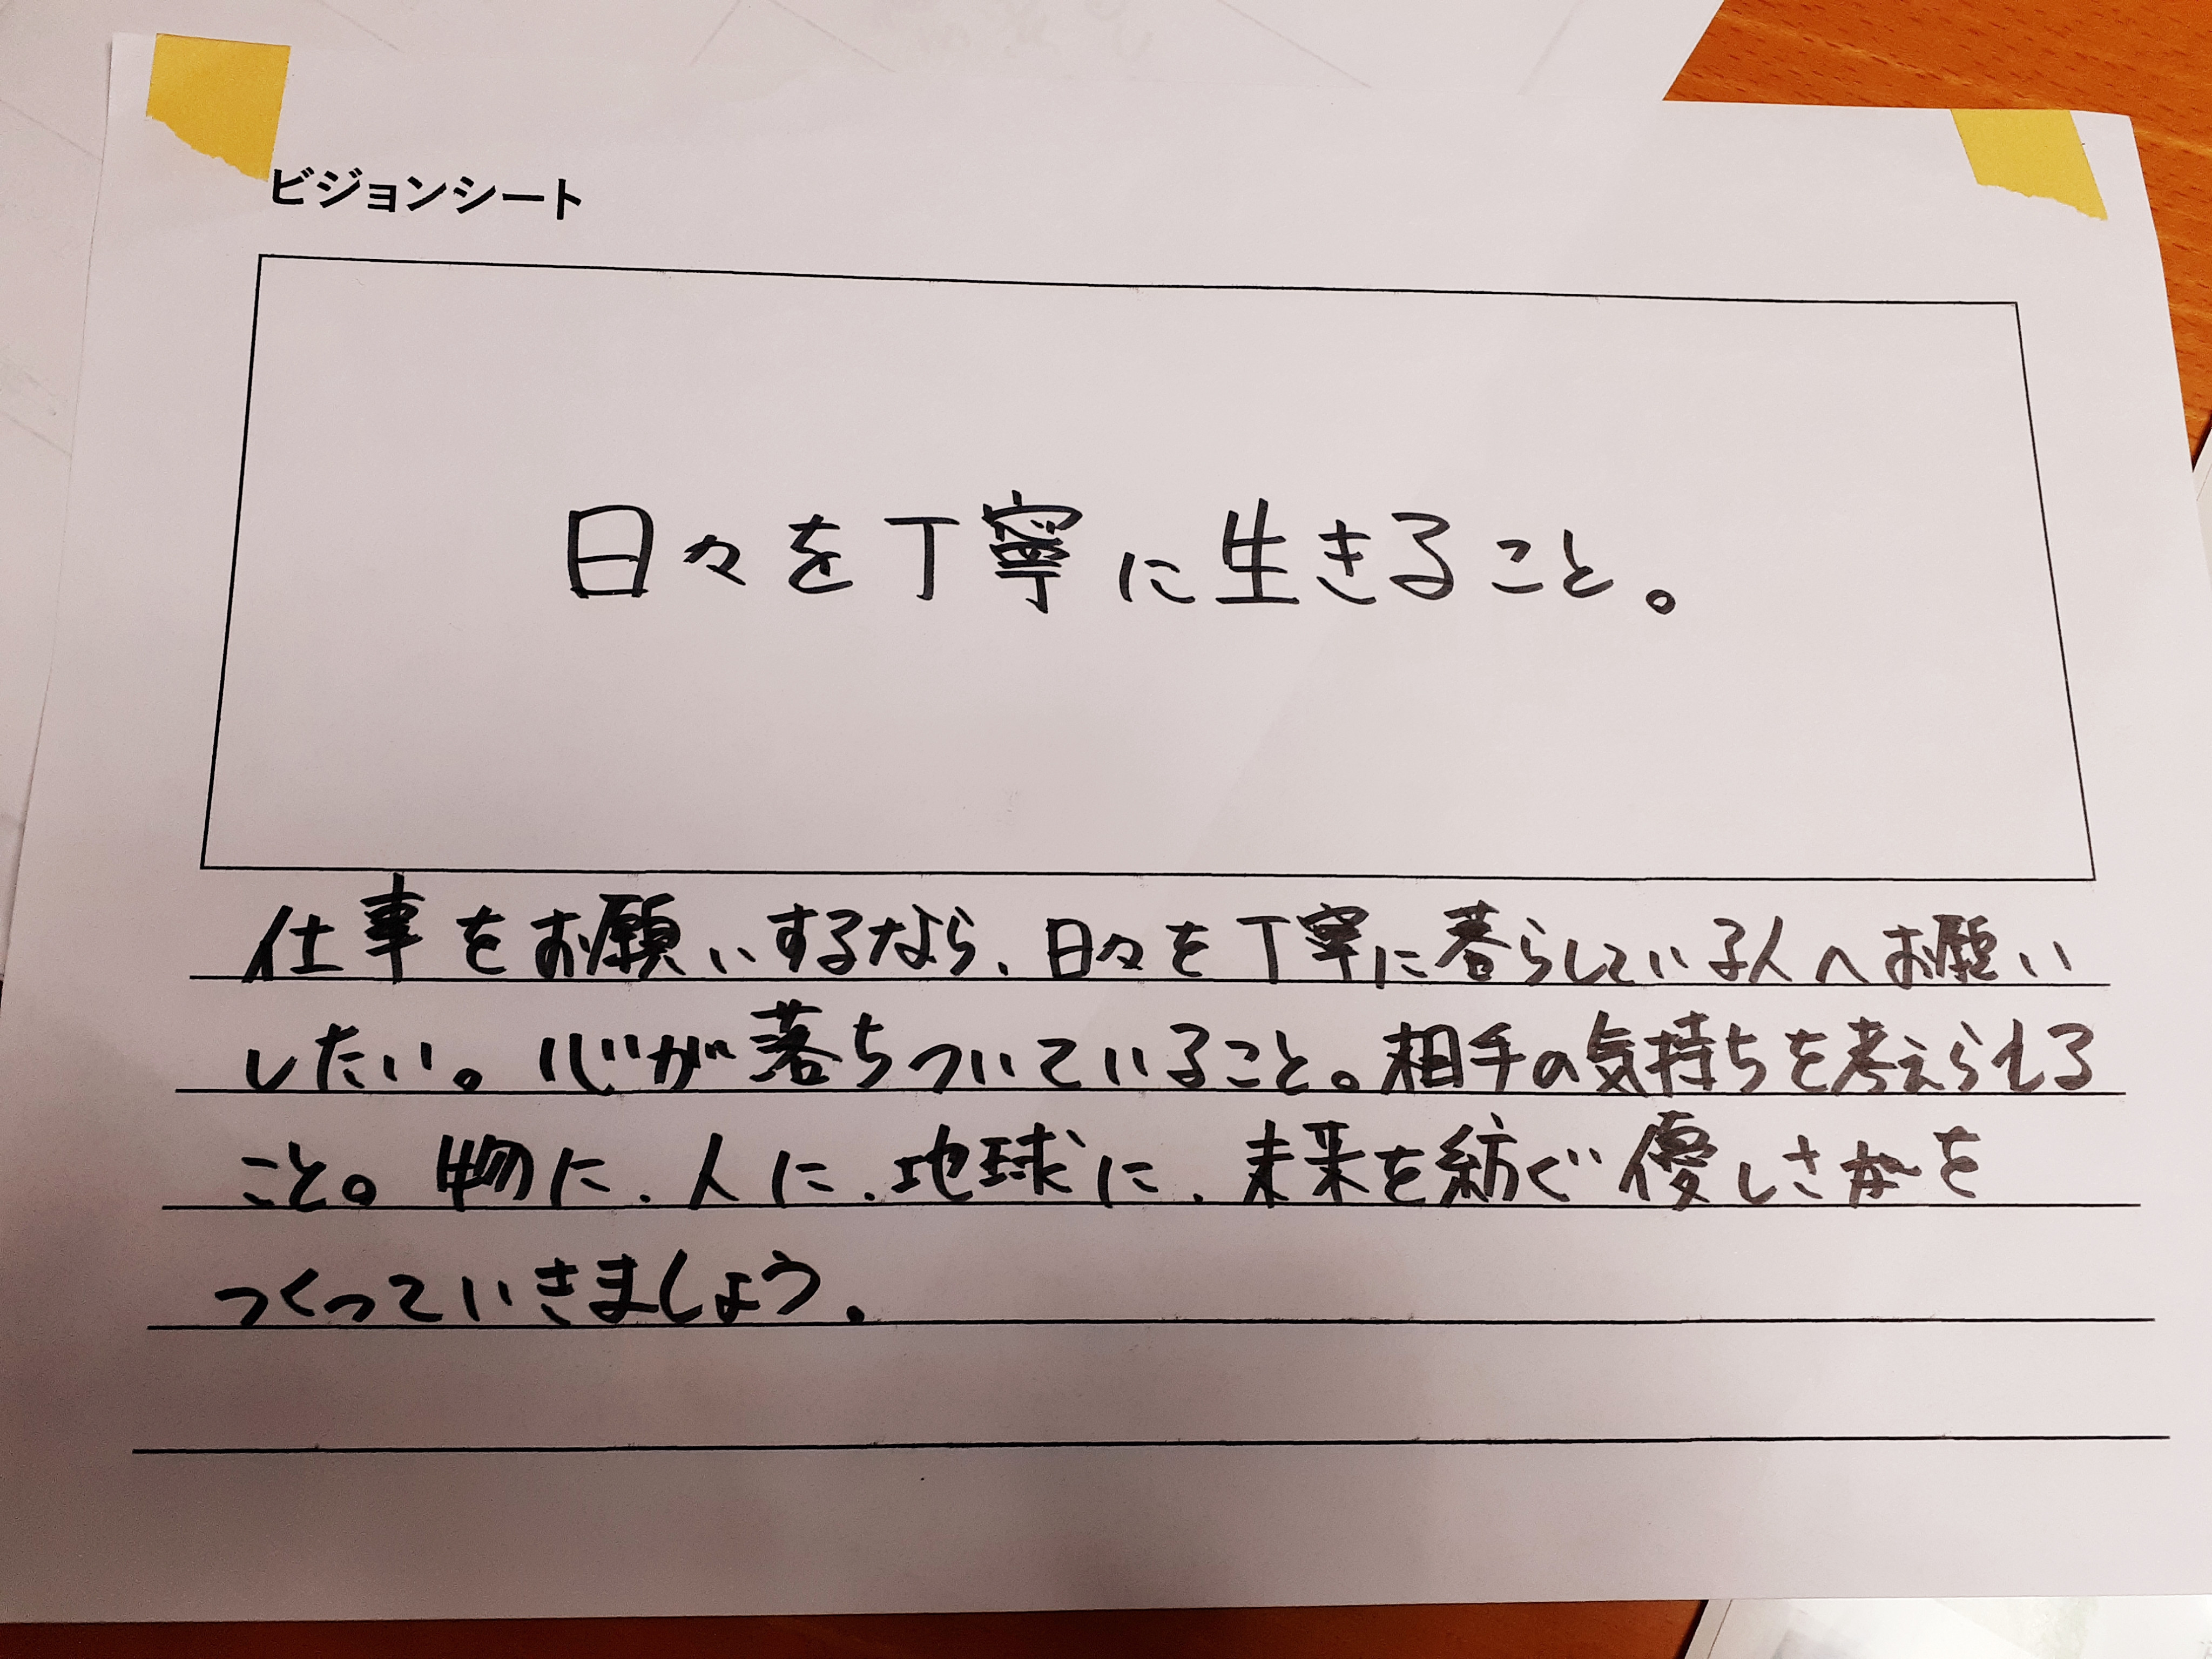 ビジョンシート
日々を丁寧に生きること。
仕事をお願いするなら、日々を丁寧に暮らしている人へお願い
したい。心が落ちついていること。相手の気持ちを考えられる
こと。物に、人に、地球に、未来を紡ぐ優しさを
つくっていきましょう。